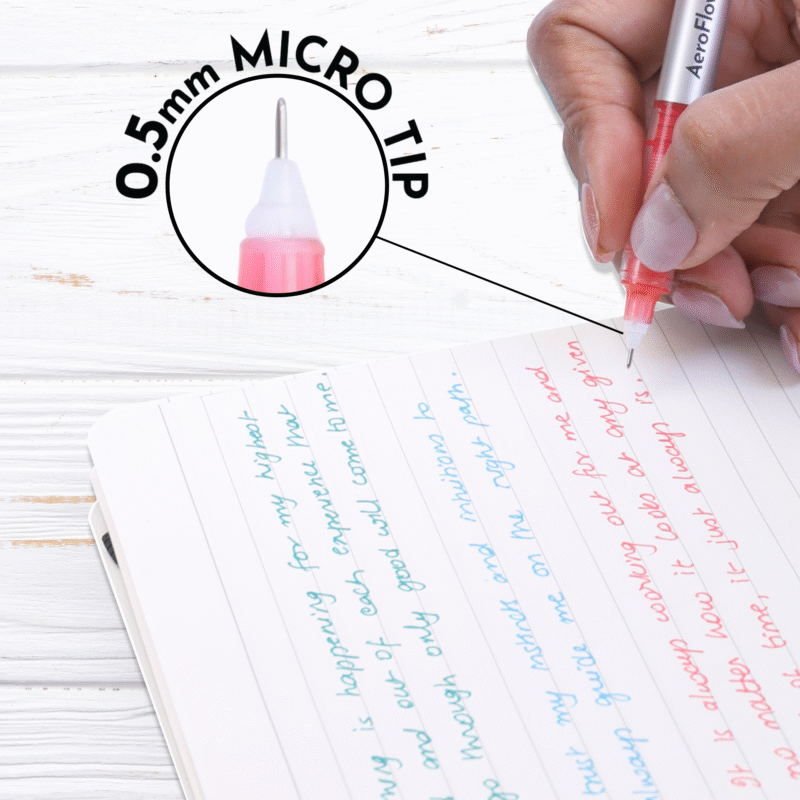 0.5mm MICRO TIP
AeroFlow
is happening for my highest
and out of each experience that
go through only good will come to me.
my instincts and intuitions to
always guide me on the right path.
It is always working out for me and
no matter how it looks at any given
time, it just always is.